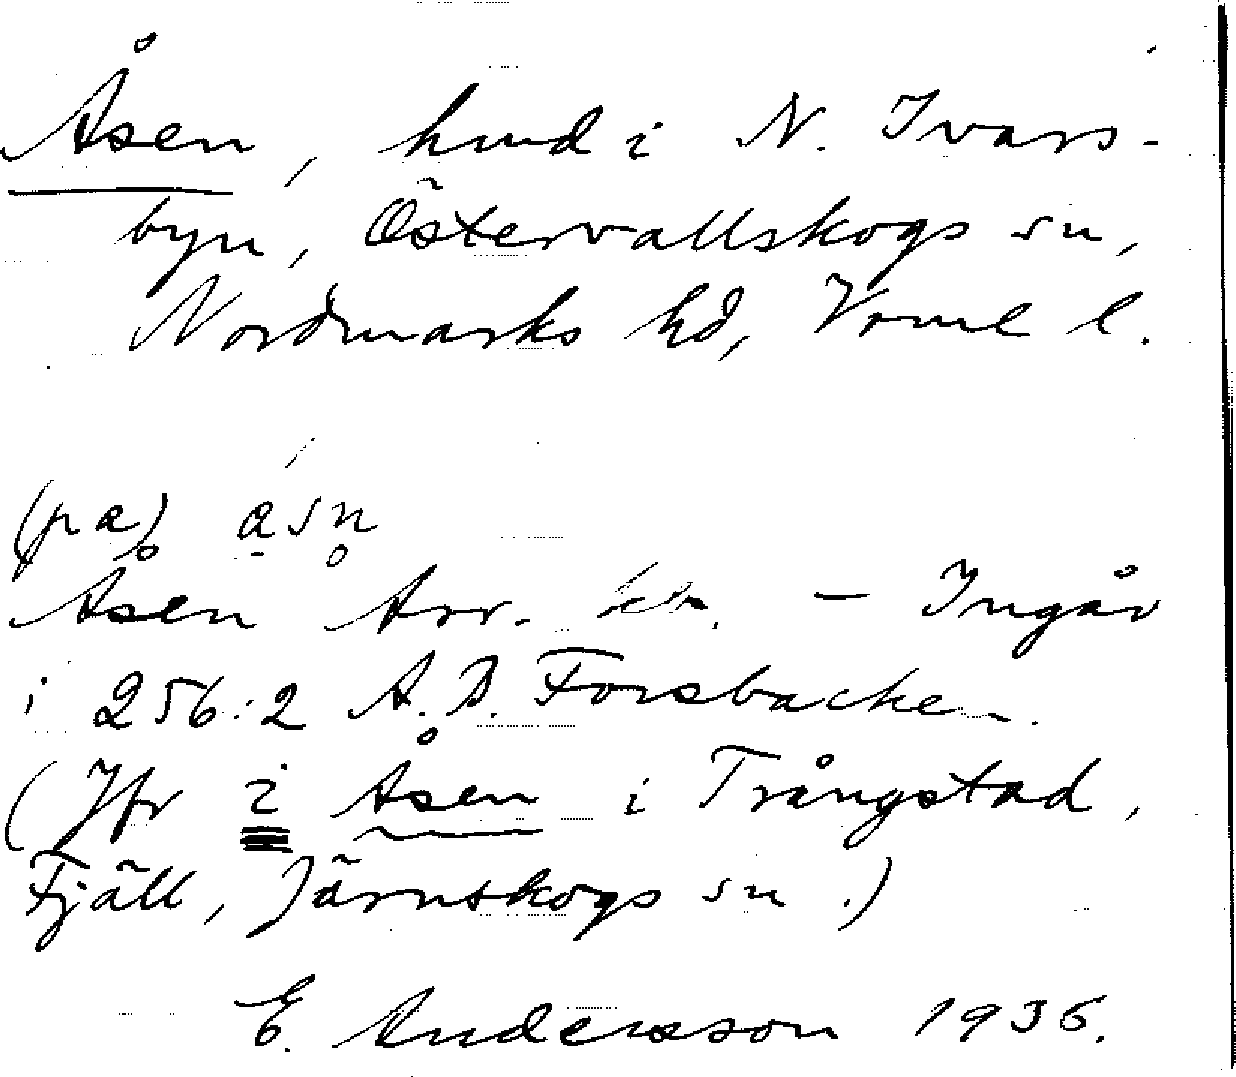 Åsen, hmd i N. Ivars-
byn, Östervallskogs sn,
Nordmarks hd, Vrml l.
(pa) asn
Åsen Arr. – Ingår
i 256:2 A. B. Forsbacken.
(Jfr i Åsen i Trångstad,
Fjäll, Järnskogs sn.)
E. Andersson 1936.